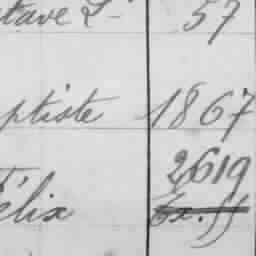 tave L- 57
ptiste 1867
2619
élix